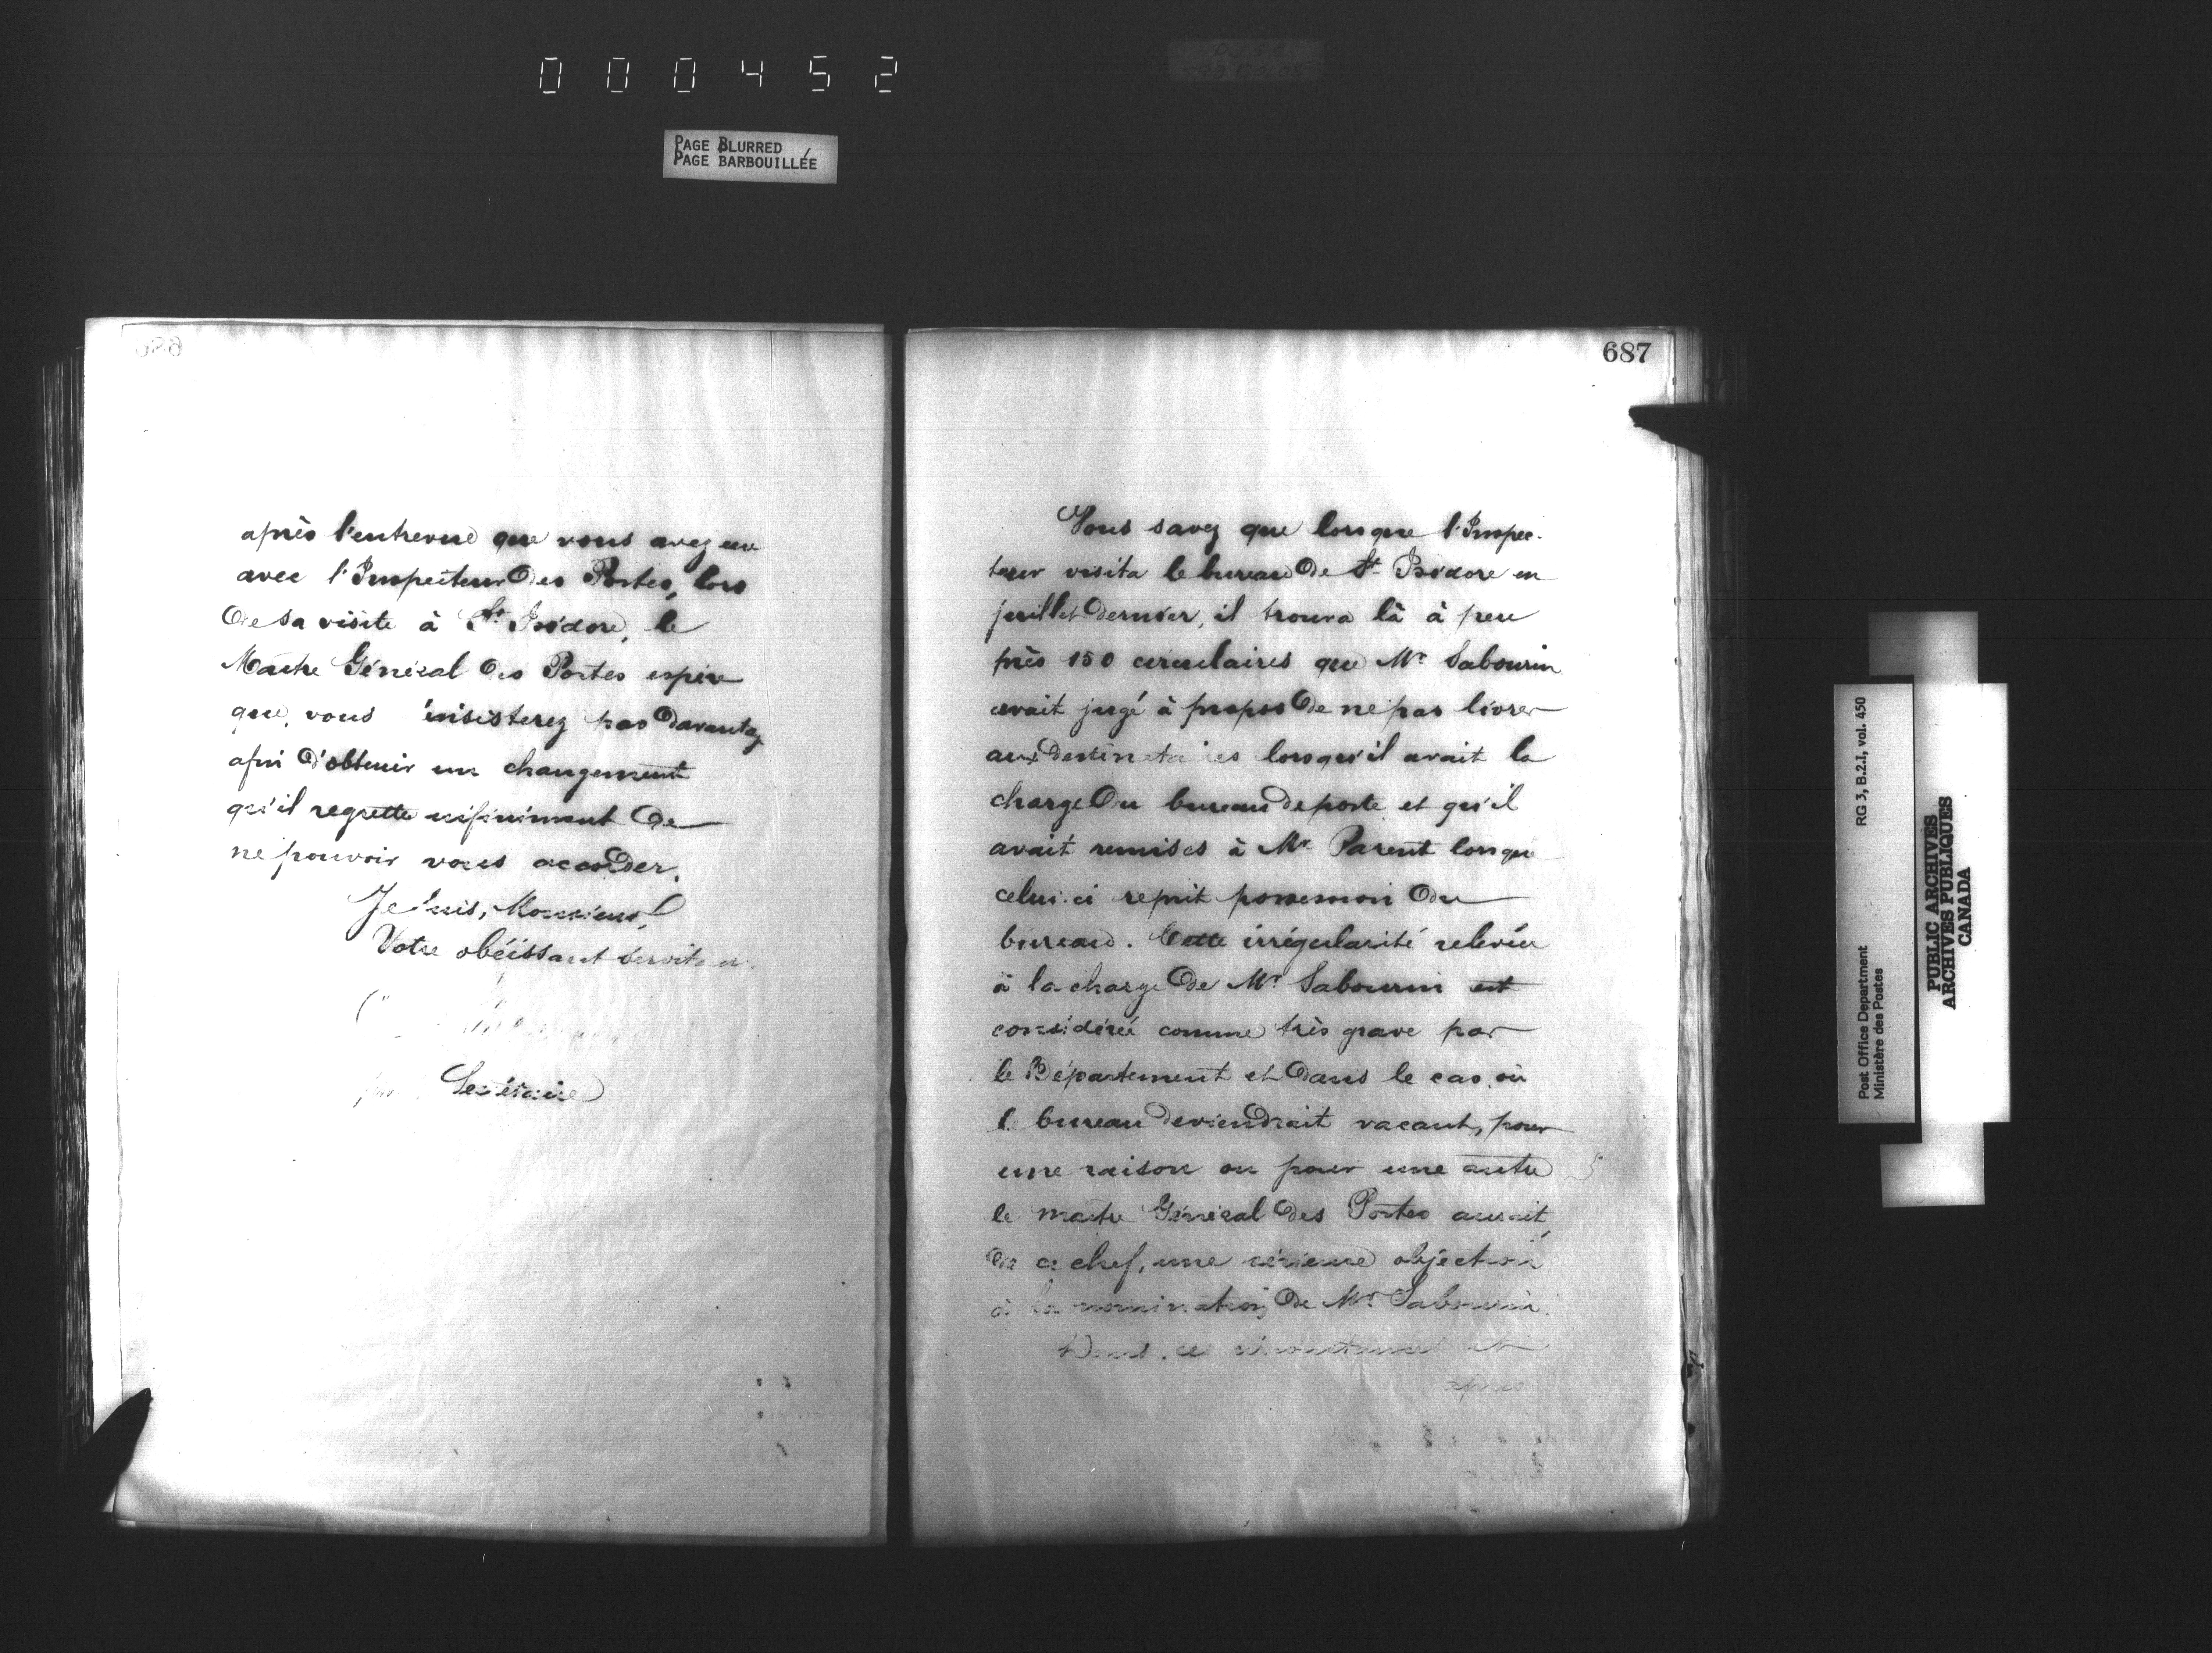 000452
PAGE BLURRED
PAGE BARBOUILLÉE
686
après l'entrevue que vous avez eue
avec l'Inspecteur des Postes, lors
de sa visite à St. Isidore, le
Maître Général des Postes espère
que vous n'insisterez pas davantage
afin d'obtenir un changement
qu'il regrette infiniment de
ne pouvoir vous accorder.
Je suis, Monsieur,
Votre obéissant serviteur
Secrétaire
687
Vous savez que lorsque l'Inspec-
teur visita le bureau de St. Isidore en
juillet dernier, il trouva là à peu
près 150 circulaires que Mr. Sabourin
avait jugé à propos de ne pas livrer
aux destinataires lorsqu'il avait la
charge du bureau de poste et qu'il
avait remises à Mr. Parent lorsque
celui-ci reprit possession du
bureau. Cette irrégularité relevée
à la charge de Mr. Sabourin est
considérée comme très grave par
le Département et dans le cas où
le bureau deviendrait vacant, pour
une raison ou pour une autre
le maître Général des Postes aurait,
de ce chef, une sérieuse objection
à la nomination de Mr. Sabourin.
Dans ces circonstances et
après
Post Office Department
Ministère des Postes
RG 3, B.2.I, vol. 450
PUBLIC ARCHIVES
ARCHIVES PUBLIQUES
CANADA